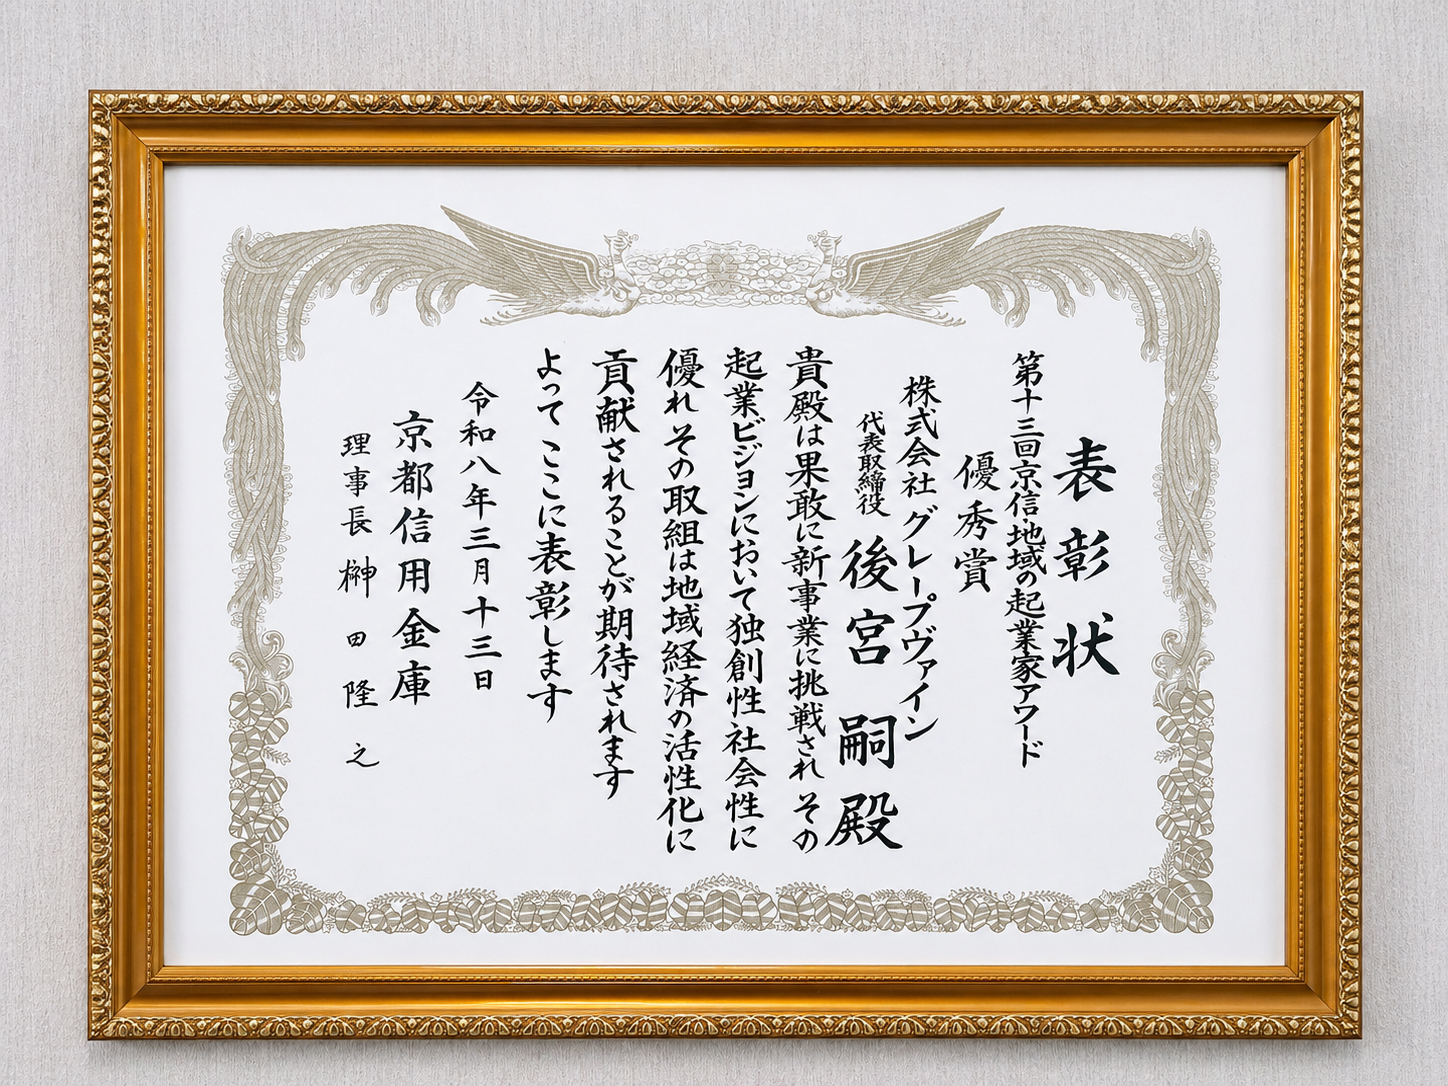 表彰状
第十三回京信・地域の起業家アワード
優秀賞
株式会社グレープヴァイン
代表取締役 後宮嗣殿
貴殿は果敢に新事業に挑戦され その
起業ビジョンにおいて独創性社会性に
優れ その取組は地域経済の活性化に
貢献されることが期待されます
よって ここに表彰します
令和八年三月十三日
京都信用金庫
理事長 榊田隆之